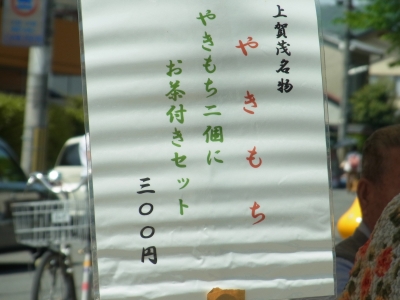 上賀茂名物
やきもち
やきもち二個に
お茶付きセット
三〇〇円